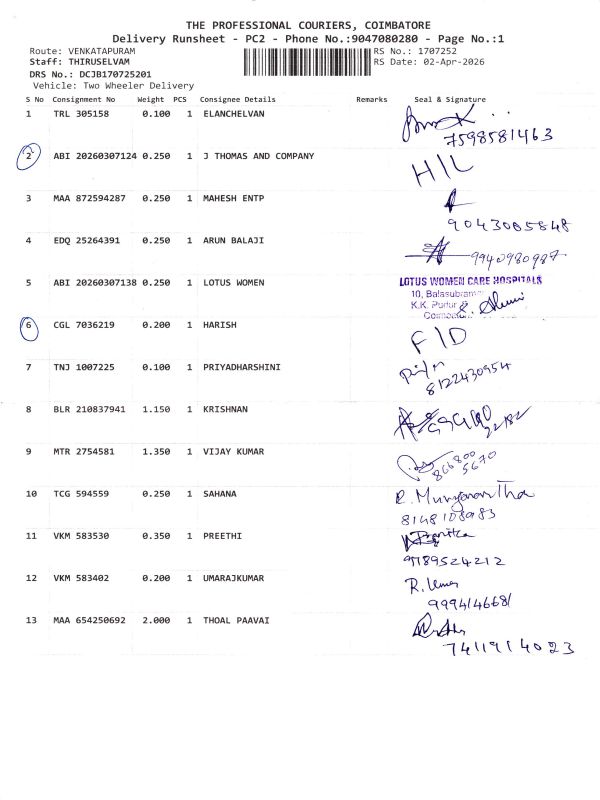 THE PROFESSIONAL COURIERS, COIMBATORE
Delivery Runsheet - PC2 - Phone No.:9047080280 - Page No.:1
Route: VENKATAPURAM RS No.: 1707252
Staff: THIRUSELVAM RS Date: 02-Apr-2026
DRS No.: DCJB170725201
Vehicle: Two Wheeler Delivery
S No Consignment No Weight PCS Consignee Details Remarks Seal & Signature
1 TRL 305158 0.100 1 ELANCHELVAN
7598581463
2 ABI 20260307124 0.250 1 J THOMAS AND COMPANY H/L
3 MAA 872594287 0.250 1 MAHESH ENTP
9043005848
4 EDQ 25264391 0.250 1 ARUN BALAJI
9940980987
5 ABI 20260307138 0.250 1 LOTUS WOMEN LOTUS WOMEN CARE HOSPITALS
10, Balasubram
K.K. Pudur
6 CGL 7036219 0.200 1 HARISH F/D
7 TNJ 1007225 0.100 1 PRIYADHARSHINI
8122430954
8 BLR 210837941 1.150 1 KRISHNAN
9 MTR 2754581 1.350 1 VIJAY KUMAR
866800
5670
10 TCG 594559 0.250 1 SAHANA
8148108983
11 VKM 583530 0.350 1 PREETHI
9789524212
12 VKM 583402 0.200 1 UMARAJKUMAR R. Umar
9994146681
13 MAA 654250692 2.000 1 THOAL PAAVAI
7411914023